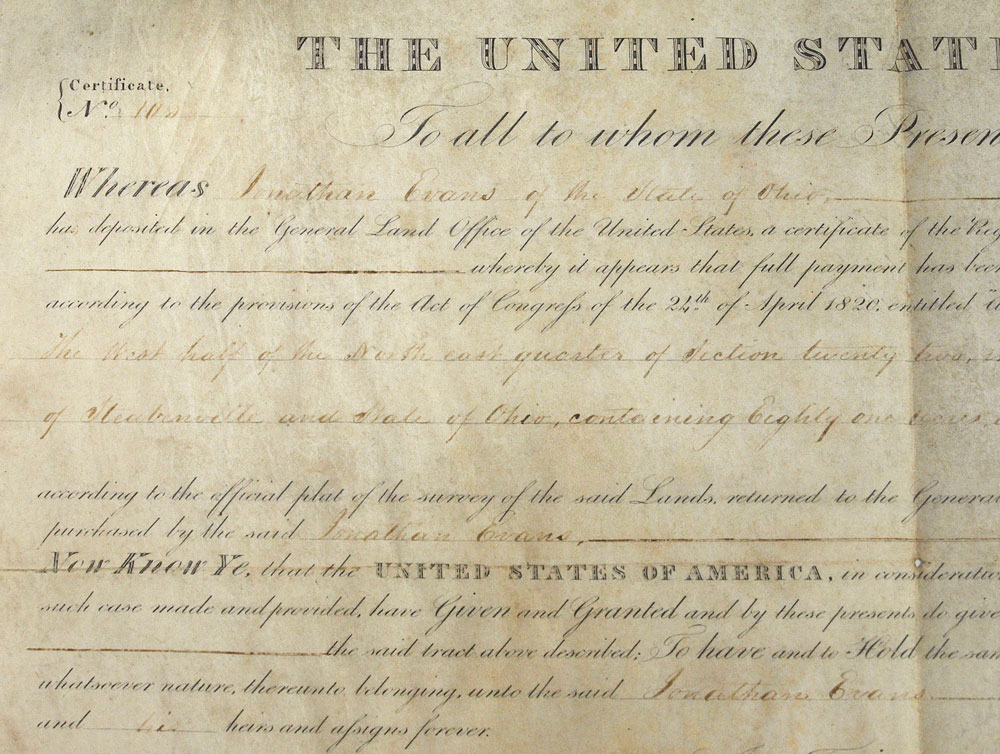 THE UNITED STAT
Certificate,
No.
To all to whom these Presen
Whereas Jonathan Evans of the State of Ohio,
has deposited in the General Land Office of the United States, a certificate of the Reg
whereby it appears that full payment has been
according to the provisions of the Act of Congreſs of the 24th of April 1820, entitled
The West half of the North east quarter of Section twenty two,
of Steubenville and State of Ohio, containing Eighty one acres,
according to the official plat of the survey of the said Lands, returned to the General
purchased by the said Jonathan Evans,
Now Know Ye, that the UNITED STATES OF AMERICA, in consideration
such case made and provided, have Given and Granted and by these presents do give
the said tract above described; To have and to Hold the sam
whatsoever nature, thereunto belonging, unto the said Jonathan Evans
and his heirs and aſsigns forever.